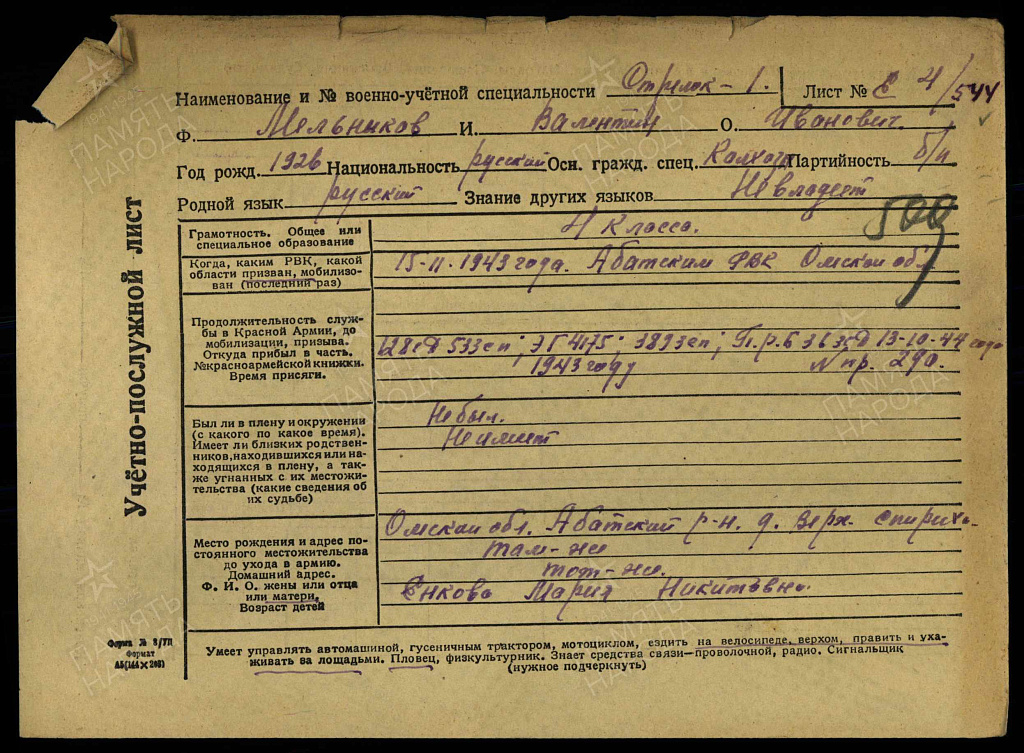 Учётно-послужной лист
Наименование и № военно-учётной специальности Стрелок – 1. Лист № с 4/544
Ф. Мельников И. Валентин О. Иванович.
Год рожд. 1926 Национальность русский Осн. гражд. спец. Колхоз. Партийность б/п
Родной язык русский Знание других языков Не владеет
500
Грамотность. Общее или
специальное образование
4 Класса.
Когда, каким РВК, какой
области призван, мобилизо-
ван (последний раз)
15-11-1943 года. Абатским РВК Омской обл.
Продолжительность служ-
бы в Красной Армии, до
мобилизации, призыва.
Откуда прибыл в часть.
№ красноармейской книжки.
Время присяги.
128 сд 533 сп; ЭГ 4175; 389 зсп; П.р.б 36 зсд 13-10-44 года
1943 году № пр. 290.
Был ли в плену и окружении
(с какого по какое время).
Имеет ли близких родствен-
ников, находившихся или на-
ходящихся в плену, а так-
же угнанных с их местожи-
тельства (какие сведения об
их судьбе)
Не был.
Не имеет
Место рождения и адрес по-
стоянного местожительства
до ухода в армию.
Домашний адрес.
Ф. И. О. жены или отца
или матери,
Возраст детей
Омской обл. Абатский р-н. д. Верх.
там-же
тот-же.
Енкова Мария Никитовна.
Форма № 3/УП
Формат
А5 (144×203)
Умеет управлять автомашиной, гусеничным трактором, мотоциклом, ездить на велосипеде, верхом, править и уха-
живать за лошадьми. Пловец, физкультурник. Знает средства связи—проволочной, радио. Сигнальщик
(нужное подчеркнуть)
ПАМЯТЬ НАРОДА